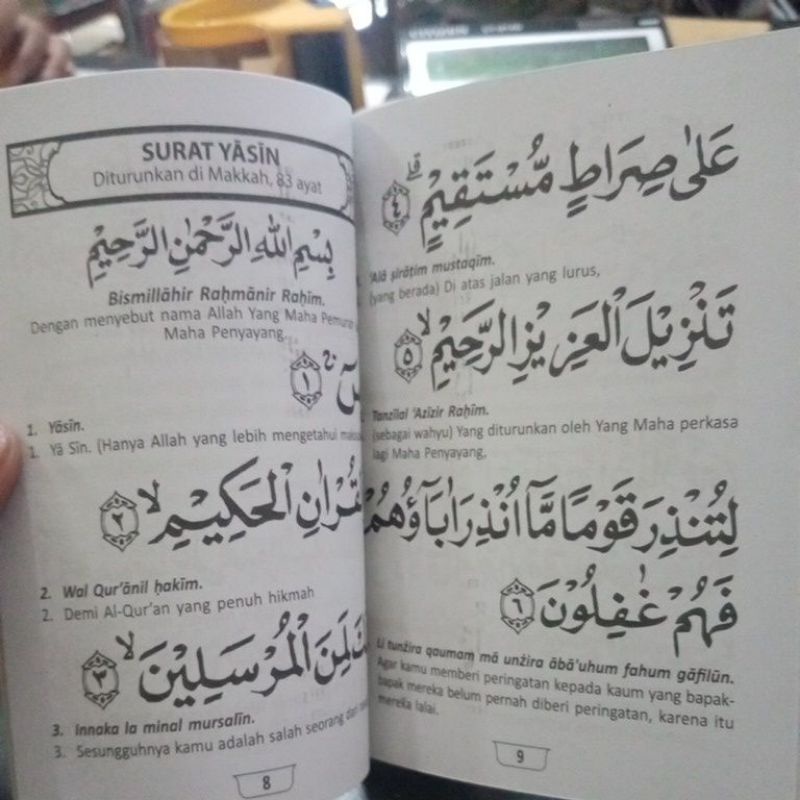 SURAT YĀSĪN
Diturunkan di Makkah, 83 ayat
بِسْمِ اللّٰهِ الرَّحْمٰنِ الرَّحِيْمِ
Bismillāhir Raḥmānir Raḥīm.
Dengan menyebut nama Allah Yang Maha Pemurah
Maha Penyayang.
١
1. Yāsīn.
1. Yā Sīn. (Hanya Allah yang lebih mengetahui
الْحَكِيْمِۙ ٢
2. Wal Qur'ānil ḥakīm.
2. Demi Al-Qur'an yang penuh hikmah
لَمِنَ الْمُرْسَلِيْنَۙ ٣
3. Innaka la minal mursalīn.
3. Sesungguhnya kamu adalah salah seorang dari
8
عَلٰى صِرَاطٍ مُّسْتَقِيْمٍۗ ٤
'Alā ṣirāṭim mustaqīm.
(yang berada) Di atas jalan yang lurus,
تَنْزِيْلَ الْعَزِيْزِ الرَّحِيْمِۙ ٥
Tanzīlal 'Azīzir Raḥīm.
(sebagai wahyu) Yang diturunkan oleh Yang Maha perkasa
lagi Maha Penyayang,
لِتُنْذِرَ قَوْمًا مَّآ اُنْذِرَ اٰبَاۤؤُهُمْ
فَهُمْ غٰفِلُوْنَ ٦
Li tunżira qaumam mā unżira ābā'uhum fahum gāfilūn.
Agar kamu memberi peringatan kepada kaum yang bapak-
bapak mereka belum pernah diberi peringatan, karena itu
mereka lalai.
9